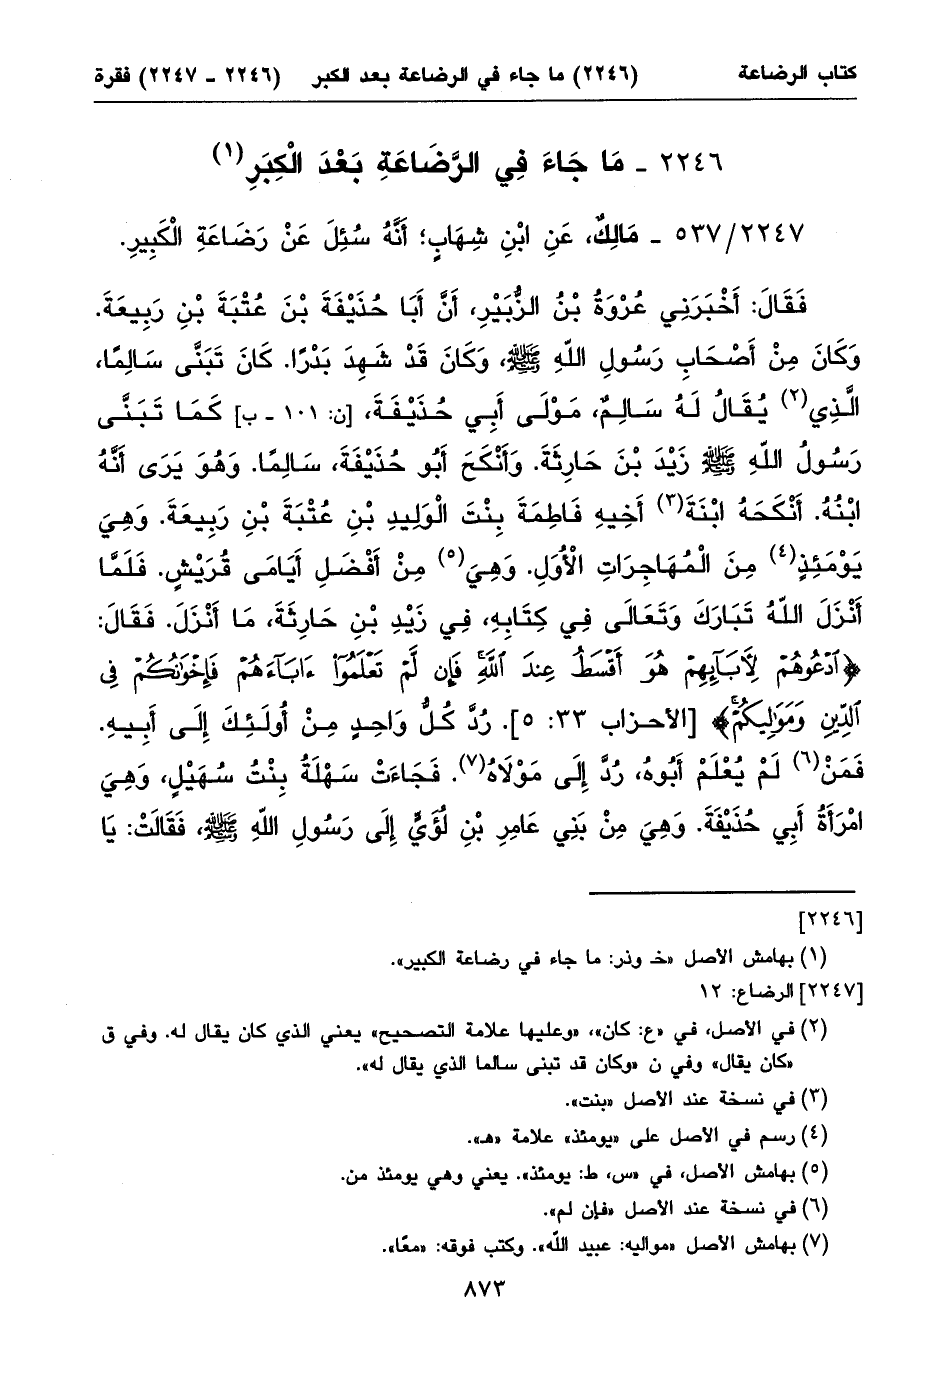 كتاب الرضاعة (٢٢٤٦) ما جاء في الرضاعة بعد الكبر (٢٢٤٦ - ٢٢٤٧) فقرة
٢٢٤٦ - مَا جَاءَ فِي الرَّضَاعَةِ بَعْدَ الْكِبَرِ(١)
٥٣٧/٢٢٤٧ - مَالِكٌ، عَنِ ابْنِ شِهَابٍ؛ أَنَّهُ سُئِلَ عَنْ رَضَاعَةِ الْكَبِيرِ.
فَقَالَ: أَخْبَرَنِي عُرْوَةُ بْنُ الزُّبَيْرِ، أَنَّ أَبَا حُذَيْفَةَ بْنَ عُتْبَةَ بْنِ رَبِيعَةَ.
وَكَانَ مِنْ أَصْحَابِ رَسُولِ اللّهِ ﷺ، وَكَانَ قَدْ شَهِدَ بَدْرًا. كَانَ تَبَنَّى سَالِمًا،
الَّذِي(٢) يُقَالُ لَهُ سَالِمٌ، مَوْلَى أَبِي حُذَيْفَةَ، [ن: ١٠١ - ب] كَمَا تَبَنَّى
رَسُولُ اللّهِ ﷺ زَيْدَ بْنَ حَارِثَةَ. وَأَنْكَحَ أَبُو حُذَيْفَةَ، سَالِمًا. وَهُوَ يَرَى أَنَّهُ
ابْنُهُ. أَنْكَحَهُ ابْنَةَ(٣) أَخِيهِ فَاطِمَةَ بِنْتَ الْوَلِيدِ بْنِ عُتْبَةَ بْنِ رَبِيعَةَ. وَهِيَ
يَوْمَئِذٍ(٤) مِنَ الْمُهَاجِرَاتِ الْأُوَلِ. وَهِيَ(٥) مِنْ أَفْضَلِ أَيَامَى قُرَيْشٍ. فَلَمَّا
أَنْزَلَ اللّهُ تَبَارَكَ وَتَعَالَى فِي كِتَابِهِ، فِي زَيْدِ بْنِ حَارِثَةَ، مَا أَنْزَلَ. فَقَالَ:
﴿ٱدْعُوهُمْ لِأَبَآئِهِمْ هُوَ أَقْسَطُ عِندَ ٱللَّهِ ۚ فَإِن لَّمْ تَعْلَمُوٓا۟ ءَابَآءَهُمْ فَإِخْوَٰنُكُمْ فِى
ٱلدِّينِ وَمَوَٰلِيكُمْ ۚ﴾ [الأحزاب ٣٣: ٥]. رُدَّ كُلُّ وَاحِدٍ مِنْ أُولَئِكَ إِلَى أَبِيهِ.
فَمَنْ(٦) لَمْ يُعْلَمْ أَبُوهُ، رُدَّ إِلَى مَوْلَاهُ(٧). فَجَاءَتْ سَهْلَةُ بِنْتُ سُهَيْلٍ، وَهِيَ
امْرَأَةُ أَبِي حُذَيْفَةَ. وَهِيَ مِنْ بَنِي عَامِرِ بْنِ لُؤَيٍّ إِلَى رَسُولِ اللّهِ ﷺ، فَقَالَتْ: يَا
[٢٢٤٦]
(١) بهامش الأصل «خـ وذر: ما جاء في رضاعة الكبير».
[٢٢٤٧] الرضاع: ١٢
(٢) في الأصل، في «ع: كان»، «وعليها علامة التصحيح» يعني الذي كان يقال له. وفي ق
«كان يقال» وفي ن «وكان قد تبنى سالما الذي يقال له».
(٣) في نسخة عند الأصل «بنت».
(٤) رسم في الأصل على «يومئذ» علامة «هـ».
(٥) بهامش الأصل، في «س، ط: يومئذ». يعني وهي يومئذ من.
(٦) في نسخة عند الأصل «فإن لم».
(٧) بهامش الأصل «مواليه: عبيد اللّه». وكتب فوقه: «معًا».
٨٧٣